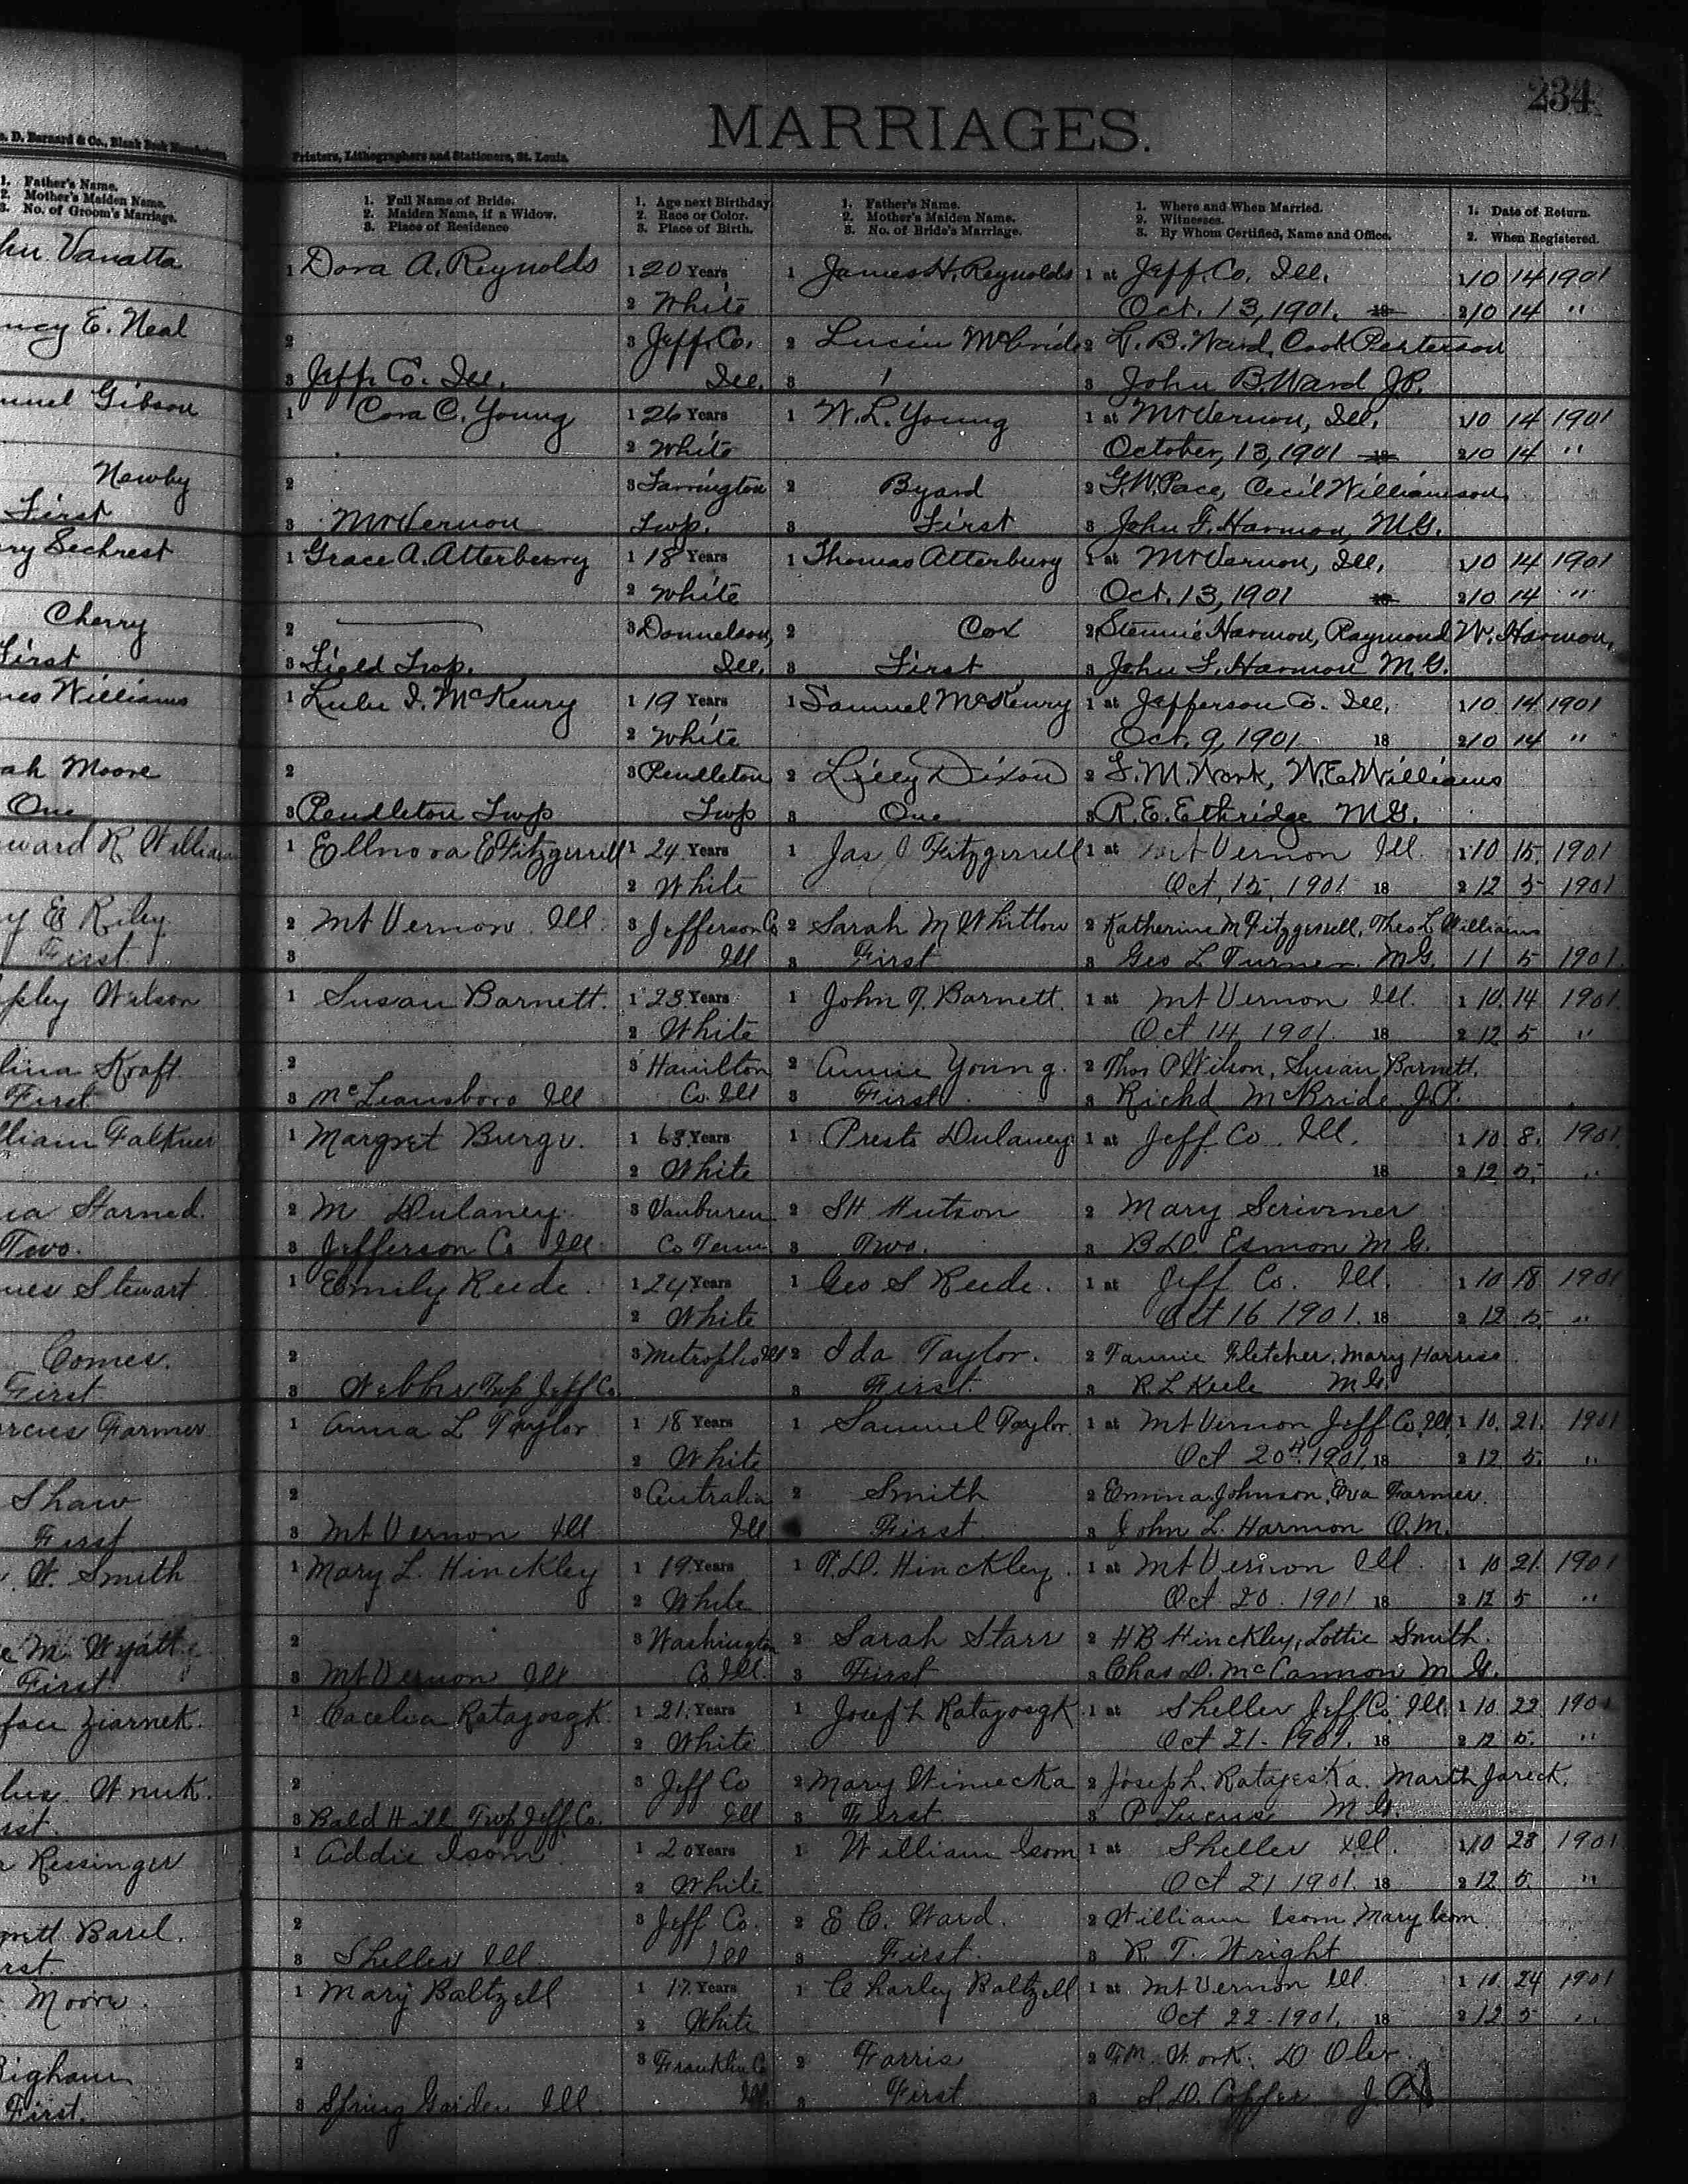 234
MARRIAGES.
D. Barnard & Co., Blank Book
Printers, Lithographers and Stationers, St. Louis.
1. Father's Name.
2. Mother's Maiden Name.
3. No. of Groom's Marriage.
1. Full Name of Bride.
2. Maiden Name, if a Widow.
3. Place of Residence
1. Age next Birthday
2. Race or Color.
3. Place of Birth.
1. Father's Name.
2. Mother's Maiden Name.
3. No. of Bride's Marriage.
1. Where and When Married.
2. Witnesses.
3. By Whom Certified, Name and Office.
1. Date of Return.
2. When Registered.
Vanatta
1 Dora A. Reynolds 1 20 Years 1 James H. Reynolds 1 at Jeff. Co. Ill. 1 10 14 1901
2 White Oct. 13, 1901. 18 2 10 14 "
E. Neal
2 3 Jeff. Co. 2 McBride 2 L. B. Ward, Cook
3 Jeff. Co. Ill. Ill. 3 1 3 John B. Ward J.P.
Gibson
1 Cora C. Young 1 26 Years 1 W. L. Young 1 at Mt Vernon, Ill. 1 10 14 1901
2 White October, 13, 1901 18 2 10 14 "
Newby
2 3 Farrington 2 Byard 2 G. W. Pace, Cecil Williamson
First
3 Mt Vernon Twp. 3 First 3 John F. Harmon, M.G.
Sechrest
1 Grace A. Atterberry 1 18 Years 1 Thomas Atterbury 1 at Mt Vernon, Ill. 1 10 14 1901
2 White Oct. 13, 1901 18 2 10 14 "
Cherry
2 3 Donnelson, 2 Cox 2 Harmon, Raymond W. Harmon,
First
3 Field Twp. Ill. 3 First 3 John F. Harmon M.G.
Williams
1 Lulu I. McKenry 1 19 Years 1 Samuel McKenry 1 at Jefferson Co. Ill. 1 10 14 1901
2 White Oct. 9, 1901 18 2 10 14 "
Moore
2 3 Pendleton 2 Lizzy Dixon 2 F. M. Work, W. E. Williams
One
3 Pendleton Twp Twp 3 One 3 R. E. Ethridge M.G.
R. William
1 Ellnora E Fitzgerrell 1 24 Years 1 Jas J Fitzgerrell 1 at Mt Vernon Ill. 1 10 15 1901
2 White Oct, 15, 1901 18 2 12 5 1901
E Riley
2 Mt Vernon Ill. 3 Jefferson Co 2 Sarah M Whitlow 2 Katherine M Fitzgerrell, Theo L Williams
First
3 Ill 3 First 3 Geo L Turner M.G. 11 5 1901
Watson
1 Susan Barnett. 1 23 Years 1 John T. Barnett. 1 at Mt Vernon Ill. 1 10. 14 1901
2 White Oct 14, 1901. 18 2 12 5 "
Kraft
2 3 Hamilton 2 Annie Young. 2 Thos P Wilson, Susan Barnett.
First
3 McLeansboro Ill Co. Ill 3 First. 3 Richd McBride J.P.
Falkner
1 Margret Burge. 1 63 Years 1 Prest Dulaney 1 at Jeff Co. Ill. 1 10 8. 1901
2 White 18 2 12 5. "
Starned.
2 M Dulaney 3 Vanburen 2 SH Hutson 2 Mary Scrivner
Two.
3 Jefferson Co Ill Co Tenn 3 Two. 3 B.D. Esmon M.G.
Stewart
1 Emily Reede. 1 24 Years 1 Geo S Reede. 1 at Jeff Co. Ill. 1 10 18 1901
2 White Oct 16 1901. 18 2 12 5. "
Comer.
2 3 Metroplis Ill 2 Ida Taylor. 2 Fannie Fletcher, Mary Harriss
First
3 Webber Twp Jeff Co. 3 First. 3 R. L Keele M.G.
Farmer
1 Anna L Taylor 1 18 Years 1 Samuel Taylor. 1 at Mt Vernon Jeff Co, Ill. 1 10. 21. 1901
2 White Oct 20th 1901. 18 2 12. 5. "
Shaw
2 3 Centralia 2 Smith 2 Emma Johnson, Eva Farmer.
First
3 Mt Vernon Ill Ill First. 3 John L. Harmon O.M.
Smith
1 Mary L. Hinckley 1 19 Years 1 Hinckley. 1 at Mt Vernon Ill 1 10 21. 1901
2 White Oct. 20. 1901 18 2 12 5 "
M. Wyatt
2 3 Washington 2 Sarah Starr 2 H B Hinckley, Lottie Smith.
First
3 Mt Vernon Ill Co Ill. 3 First 3 Chas D. McCammon M.G.
Ziarnek.
1 Cacelia Ratajosgk. 1 21 Years 1 Joseph Ratajosgk 1 at Sheller Jeff Co. Ill. 1 10. 22. 1901
2 White Oct 21 - 1901. 18 2 12 5. "
Wnuk.
2 3 Jeff Co 2 Mary Wimecka 2 Joseph. Ratajeska. Marth Jareck.
3 Bald Hill Twp Jeff Co. Ill 3 First. 3 P Lucus M.G.
Kissinger
1 Addie Isom 1 20 Years 1 William Isom 1 at Sheller Ill. 1 10 23 1901
2 White Oct 21 1901. 18 2 12 5. "
Barel.
2 3 Jeff Co. 2 E C. Ward. 2 William Isom Mary Isom
3 Sheller Ill Ill 3 First. 3 R. T. Wright
Moore.
1 Mary Baltzell 1 17 Years 1 Charley Baltzell 1 at Mt Vernon Ill 1 10. 24 1901
2 White Oct 22 - 1901. 18 2 12 5 "
2 3 Franklin Co 2 Farris 2 F M. Work. D Oler.
First.
3 Spring Garden Ill. Ill. 3 First 3 J.P.